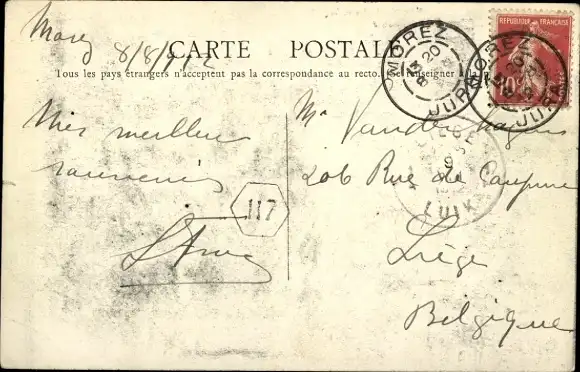 Morez 8/8/1912
CARTE POSTALE
Tous les pays étrangers n'acceptent pas la correspondance au recto. (Se renseigner
RÉPUBLIQUE FRANÇAISE
10
MOREZ
20
8
JURA
MOREZ
JURA
Mr
206 Rue de
Liège
Belgique
Mes meilleurs
souvenirs
117
9
LUIK